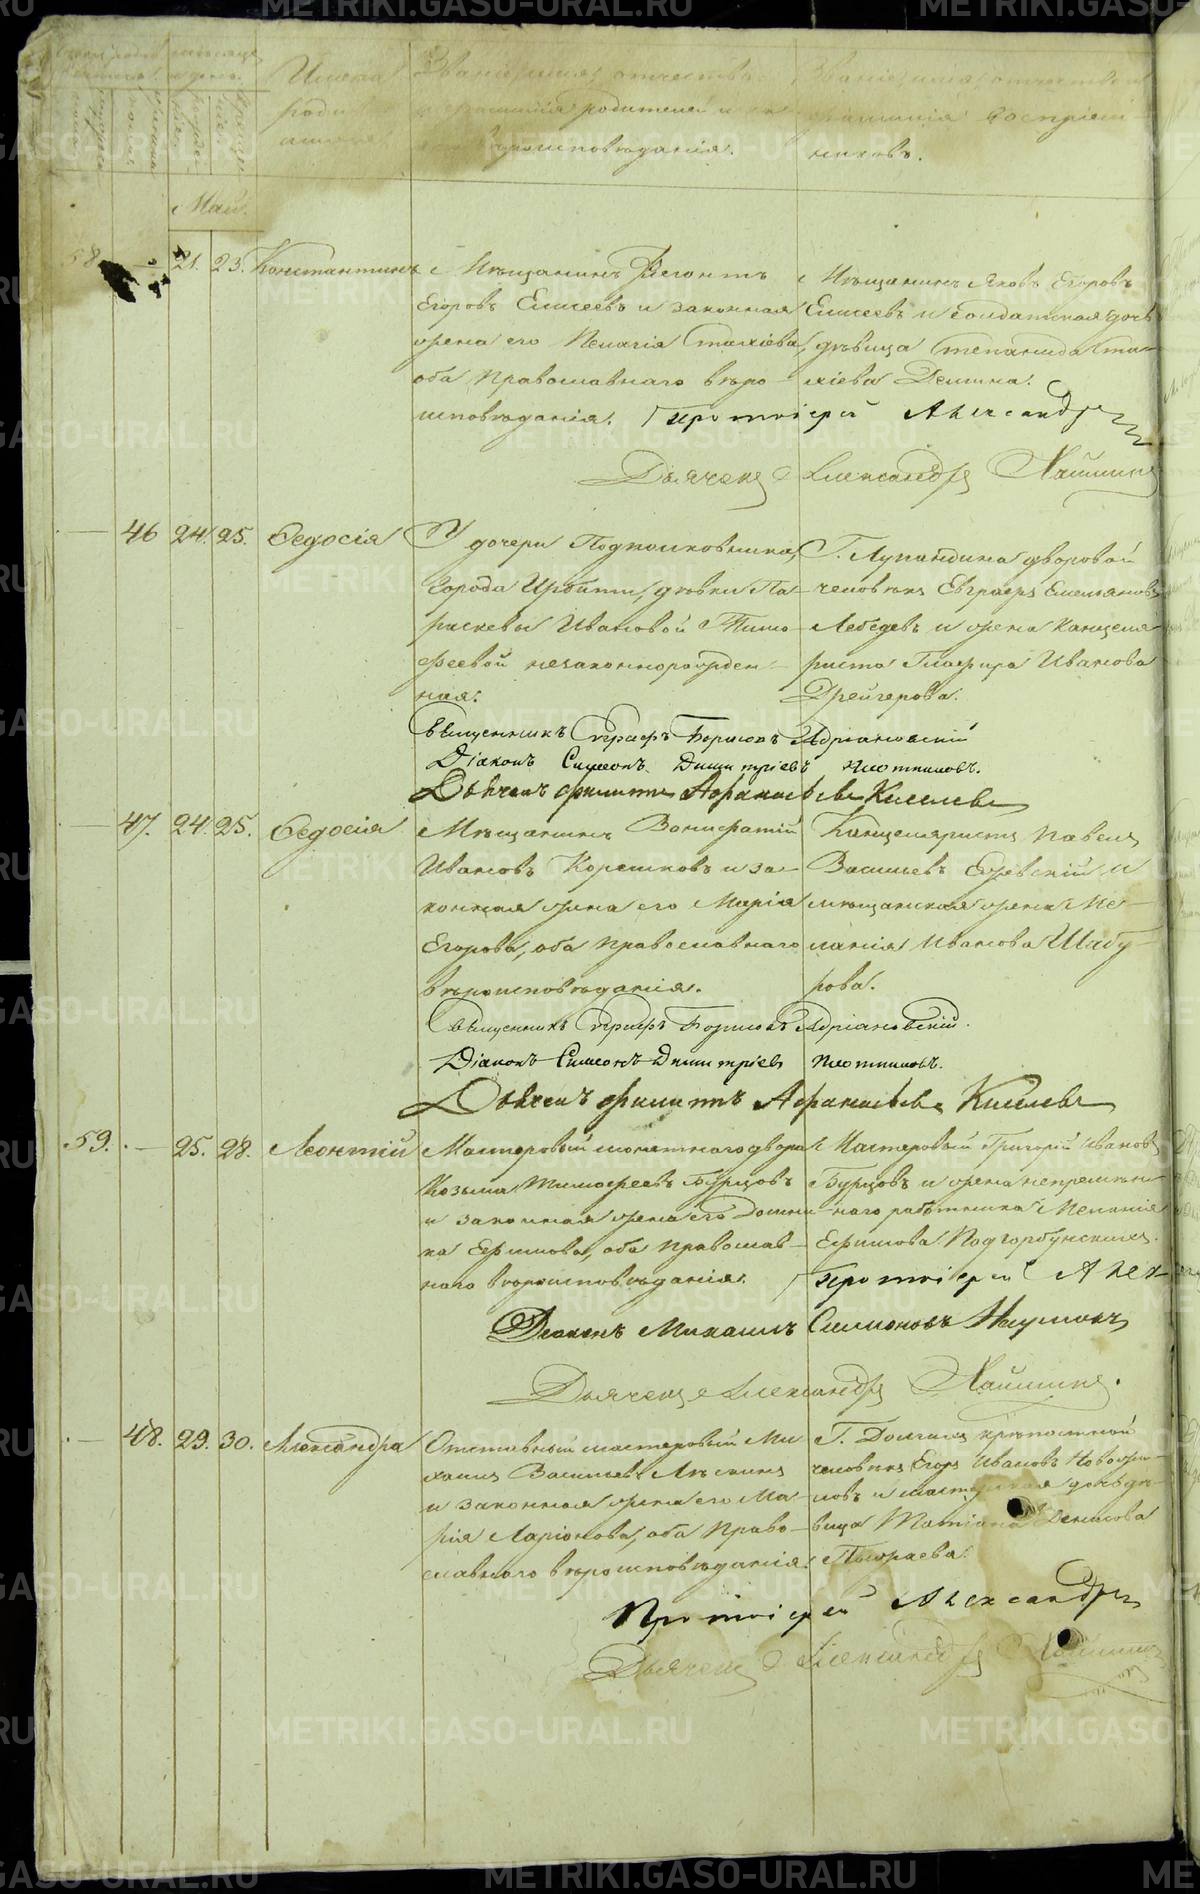 METRIKI.GASO-URAL.RU
Имена
роди
Званіе, имя, отчество
и фамилія родителей и
вѣроисповѣданія.
Званіе, имя, отчество и
фамилія воспріем-
никовъ.
Май.
58. — 21. 23. Константинъ
Мѣщанинъ Леонтъ
Егоровъ Елисеевъ и законная
жена его Пелагія Стахіева,
оба православнаго вѣро-
исповѣданія.
Мѣщанинъ Яковъ Егоровъ
Елисеевъ и солдатская дочь
дѣвица Степанида Ста-
хіева Демина.
Протоіерей Александръ
Дьячекъ Александръ
— 46 24. 25. Ѳедосія
У дочери Подполковника,
города Ирбити, дѣвки Па-
раскевы Ивановой Тимо-
феевой незаконнорожден-
ная.
Г. Лупандина дворовой
человѣкъ Евграфъ Емельяновъ
Лебедевъ и жена Канцеля-
риста Глафира Иванова
Дрейерова.
Священникъ Стефанъ Борисовъ Адріановскій
Діаконъ Симеонъ Димитріевъ Плотниковъ.
Дьячекъ Филиппъ Афанасьевъ Киселевъ
— 47. 24. 25. Ѳедосія
Мѣщанинъ Вонифатій
Ивановъ Корешковъ и за-
конная жена его Марія
Егорова, оба православнаго
вѣроисповѣданія.
Канцеляристъ Павелъ
Васильевъ и
мѣщанская жена Ме-
ланія Иванова Шабу-
рова.
Священникъ Стефанъ Борисовъ Адріановскій.
Діаконъ Симеонъ Димитріевъ Плотниковъ.
Дьячекъ Филиппъ Афанасьевъ Киселевъ
59. — 25. 28. Леонтій
Мастеровый монетнаго двора
Козьма Тимофеевъ Бурцовъ
и законная жена его Домни-
ка Ефимова, оба православ-
наго вѣроисповѣданія.
Мастеровый Григорій Ивановъ
Бурцовъ и жена непремѣн-
наго работника Пелагія
Ефимова Подгорбунскихъ.
Протоіерей Алек-
Діаконъ Михаилъ Симоновъ Наумовъ
Дьячекъ Александръ
— 48. 29. 30. Александра
Отставный мастеровый Ми-
хаилъ Васильевъ
и законная жена его Ма-
рія Ларіонова, оба право-
славнаго вѣроисповѣданія.
Г. крѣпостной
человѣкъ Егоръ Ивановъ
и мастерская дочь дѣ-
вица Татіана Денисова
Протоіерей Александръ
Дьячекъ Александръ